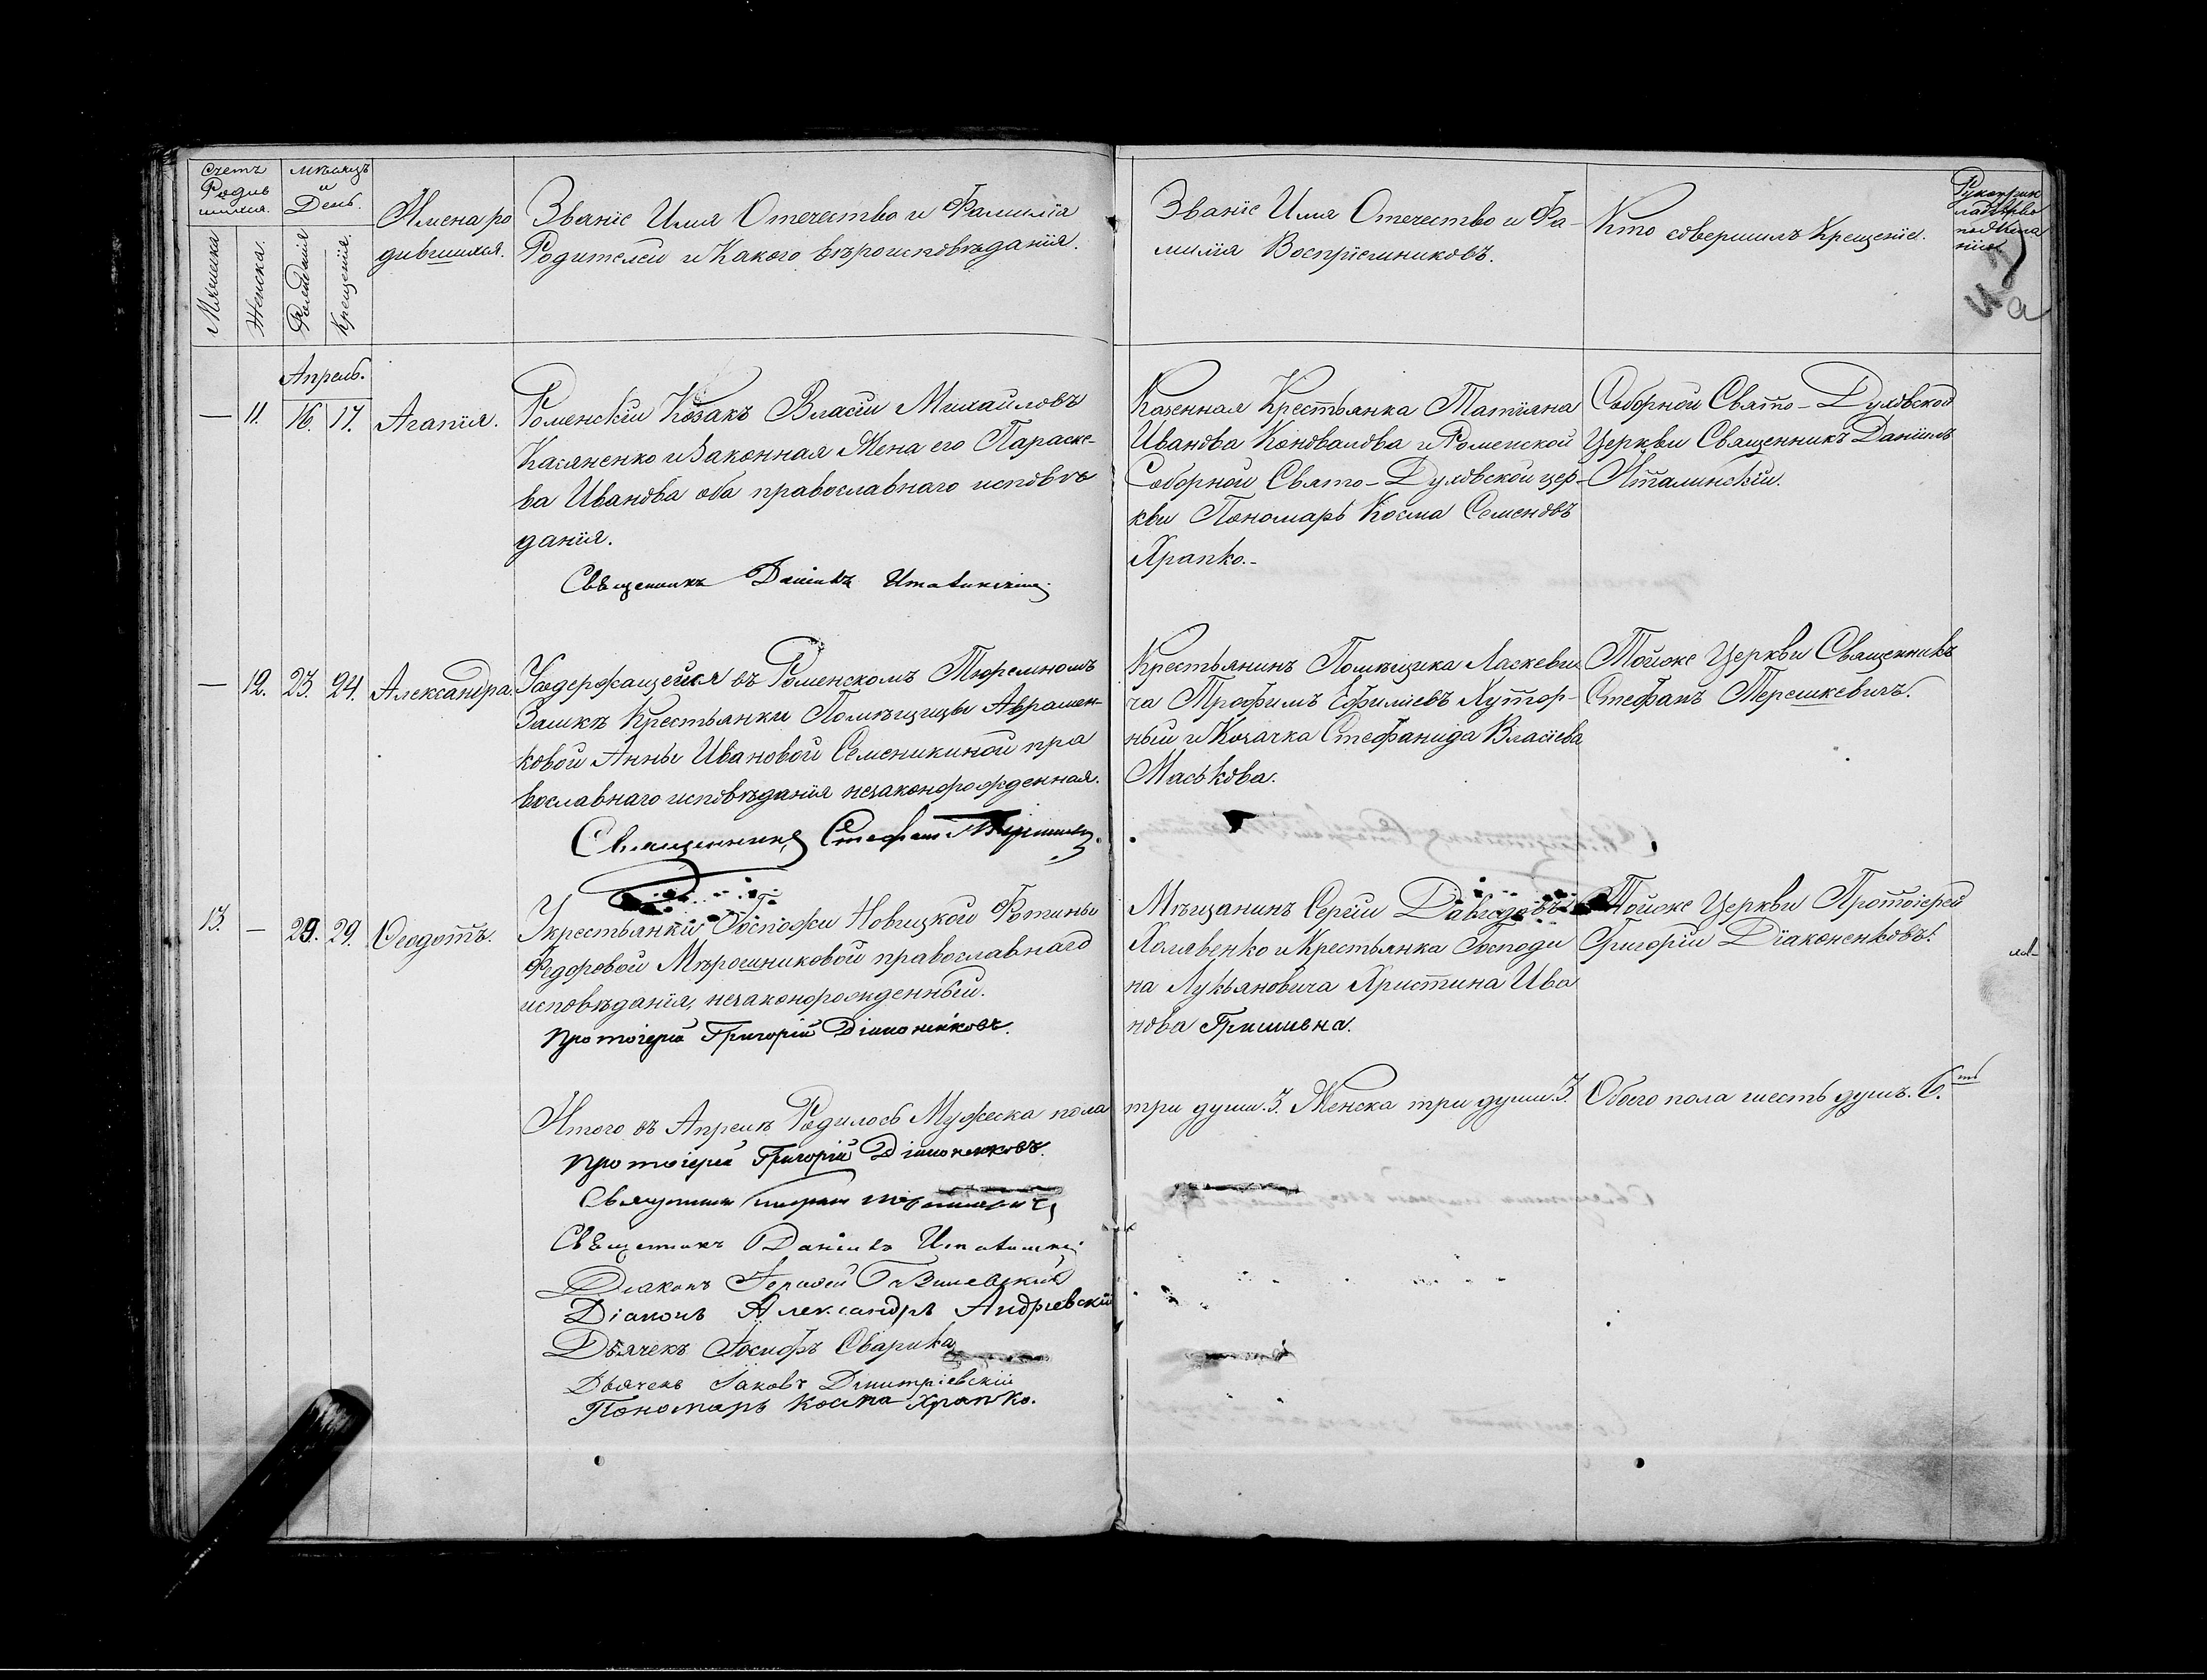 Счетъ
Родив
шихся.
Мѣсяцъ
и
День.
Имена ро
дившихся.
Званіе Имя Отечество и Фамилія
Родителей и Какого вѣроисповѣданія.
Званіе Имя Отечество и Фа-
милія Воспріемниковъ.
Кто совершилъ Крещеніе.
Рукоприк
ладство
Мужеска
Женска.
Рожденія
Крещенія.
Апрель.
— 11. 16. 17. Агапія.
Роменскій Козакъ Власій Михайловъ
Касяненко и Законная Жена его Параске-
ва Иванова оба православнаго исповѣ
данія.
Священникъ Даніилъ Италинскій
Казенная Крестьянка Татіана
Иванова Коновалова и Роменской
Соборной Свято-Духовской цер-
кви Пономарь Косма Семеновъ
Храпко.-
Соборной Свято-Духовской
Церкви Священникъ Даніилъ
Италинскій.
— 12. 23. 24. Александра.
Уодержащейся въ Роменскомъ Тюремномъ
Замкѣ Крестьянки Помѣщицы Аврамен-
ковой Анны Ивановой Семеникиной пра
вославнаго исповѣданія незаконорожденная.
Священникъ Стефанъ
Крестьянинъ Помѣщика Ласкеви
ча Трофимъ Ефиміевъ Хутор-
ный и Козачка Стефанида Власіева
Маськова.
Тойже Церкви Священникъ
Стефанъ Терешкевичъ.
13. — 29. 29. Ѳеодотъ.
Укрестьянки Госпожи Новицкой Фотиньи
Федоровой Мѣрошниковой православнаго
исповѣданія, незаконорожденный.
Протоіерей Григорій Діаконенковъ.
Мѣщанинъ Сергій Давидовъ
Халявенко и Крестьянка Господи
на Лукьяновича Христина Ива
нова Гришиена.
Тойже Церкви Протоіерей
Григорій Діаконенковъ.
Итого въ Апрелѣ Родилось Мужеска пола
три души. 3. Женска три души. 3.
Обоего пола шесть душъ. 6.
Протоіерей Григорій Діаконенковъ.
Священникъ Стефанъ
Священникъ Даніилъ Италинскій
Діаконъ
Діаконъ Александръ Андріевскій
Дьячекъ Іосифъ Сварика
Дьячекъ Іаковъ Димитріевскій
Пономарь Косма Храпко.